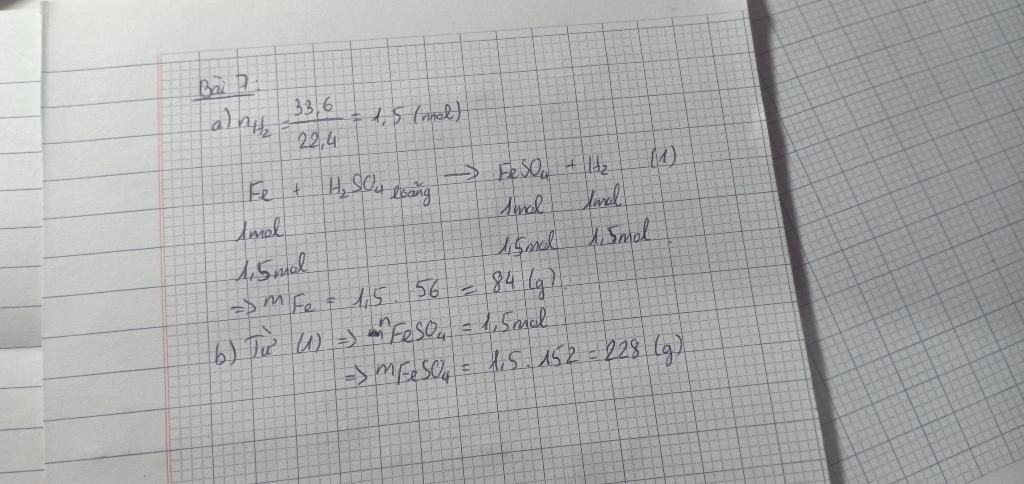 Bài 7:
a) nH₂ = 33,6 / 22,4 = 1,5 (mol)
Fe + H₂SO₄ loãng → FeSO₄ + H₂ (1)
1mol 1mol 1mol
1,5mol 1,5mol 1,5mol
=> mFe = 1,5 . 56 = 84 (g)
b) Từ (1) => nFeSO₄ = 1,5mol
=> mFeSO₄ = 1,5 . 152 = 228 (g)